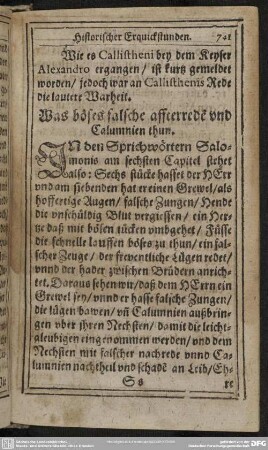 Historischer Erquickstunden. 741
Wie es Callistheni bey dem Keyser
Alexandro ergangen / ist kurtz gemeldet
worden / jedoch war an Callisthenis Rede
die lautere Warheit.
Was böses falsche affterredẽ vnd
Calumnien thun.
IN den Sprichwörtern Salo-
monis am sechsten Capitel stehet
also: Sechs stücke hasset der HErr
vnd am siebenden hat er einen Grewel / als
hoffertige Augen / falsche Zungen / Hende
die vnschüldig Blut vergiessen / ein Her-
tze daß mit bösen tücken vmbgehet / Füsse
die schnelle lauffen böses zu thun / ein fal-
scher Zeuge / der freuentliche Lügen redet /
vnnd der hader zwischen Brüdern anrich-
tet. Daraus sehen wir / daß dem HErrn ein
Grewel sey / vnnd er hasse falsche Zungen /
die lügen bawen / vñ Calumnien außbrin-
gen vber jhren Nechsten / damit die leicht-
gleubigen eingenommen werden / vnd dem
Nechsten mit falscher nachrede vnnd Ca-
lumnien nachtheil vnd schadẽ an Leib / Eh-
Ss re